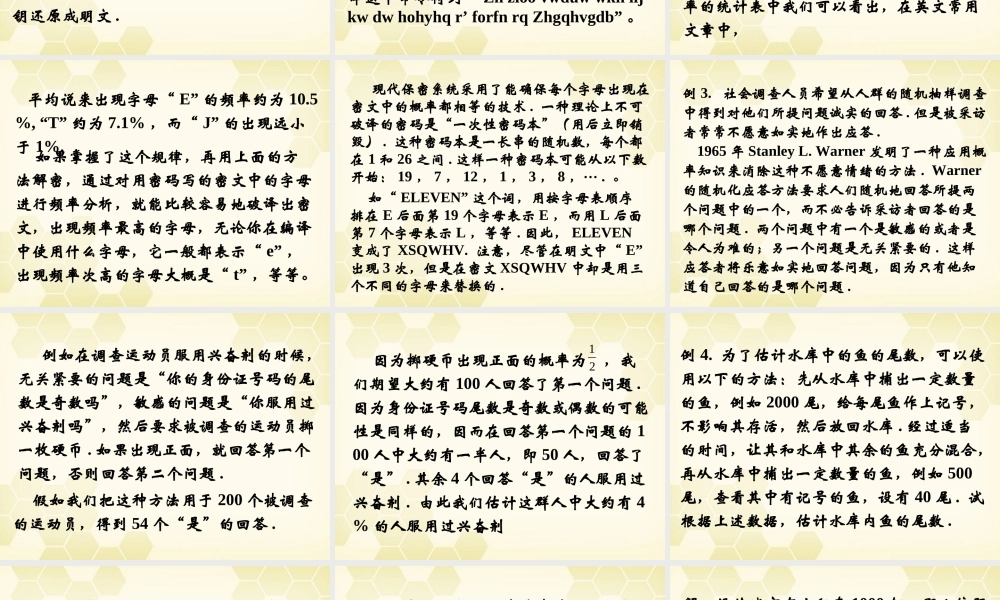 钥还原成明文．
kw dw hohyhq r’ forfn rq Zhgqhvgdb”。
率的统计表中我们可以看出，在英文常用
文章中，
平均说来出现字母“ E” 的频率约为 10.5
%, “T” 约为 7.1% ，而“ J” 的出现远小
于 1%
如果掌握了这个规律，再用上面的方
法解密，通过对用密码写的密文中的字母
进行频率分析，就能比较容易地破译出密
文，出现频率最高的字母，无论你在编译
中使用什么字母，它一般都表示“ e”，
出现频率次高的字母大概是“ t”，等等。
现代保密系统采用了能确保每个字母出现在
密文中的概率都相等的技术．一种理论上不可
破译的密码是“一次性密码本”（用后立即销
毁）．这种密码本是一长串的随机数，每个都
在 1 和 26 之间．这样一种密码本可能从以下数
开始： 19 ， 7 ， 12 ， 1 ， 3 ， 8 ，⋯ . 。
如“ ELEVEN” 这个词，用按字母表顺序
排在 E 后面第 19 个字母表示 E ，而用 L 后面
第 7 个字母表示 L ，等等．因此， ELEVEN
变成了 XSQWHV. 注意，尽管在明文中“ E”
出现 3 次，但是在密文 XSQWHV 中却是用三
个不同的字母来替换的．
例 3. 社会调查人员希望从人群的随机抽样调查
中得到对他们所提问题诚实的回答．但是被采访
者常常不愿意如实地作出应答．
1965 年 Stanley L. Warner 发明了一种应用概
率知识来消除这种不愿意情绪的方法．Warner
的随机化应答方法要求人们随机地回答所提两
个问题中的一个，而不必告诉采访者回答的是
哪个问题．两个问题中有一个是敏感的或者是
令人为难的；另一个问题是无关紧要的．这样
应答者将乐意如实地回答问题，因为只有他知
道自己回答的是哪个问题．
例如在调查运动员服用兴奋剂的时候，
无关紧要的问题是“你的身份证号码的尾
数是奇数吗”，敏感的问题是“你服用过
兴奋剂吗”，然后要求被调查的运动员掷
一枚硬币．如果出现正面，就回答第一个
问题，否则回答第二个问题．
假如我们把这种方法用于 200 个被调查
的运动员，得到 54 个“是”的回答．
因为掷硬币出现正面的概率为 1/2 ，我
们期望大约有 100 人回答了第一个问题．
因为身份证号码尾数是奇数或偶数的可能
性是同样的，因而在回答第一个问题的 1
00 人中大约有一半人，即 50 人，回答了
“是”．其余 4 个回答“是”的人服用过
兴奋剂．由此我们估计这群人中大约有 4
% 的人服用过兴奋剂
例 4. 为了估计水库中的鱼的尾数，可以使
用以下的方法：先从水库中捕出一定数量
的鱼，例如 2000 尾，给每尾鱼作上记号，
不影响其存活，然后放回水库．经过适当
的时间，让其和水库中其余的鱼充分混合，
再从水库中捕出一定数量的鱼，例如 500
尾，查看其中有记号的鱼，设有 40 尾．试
根据上述数据，估计水库内鱼的尾数．